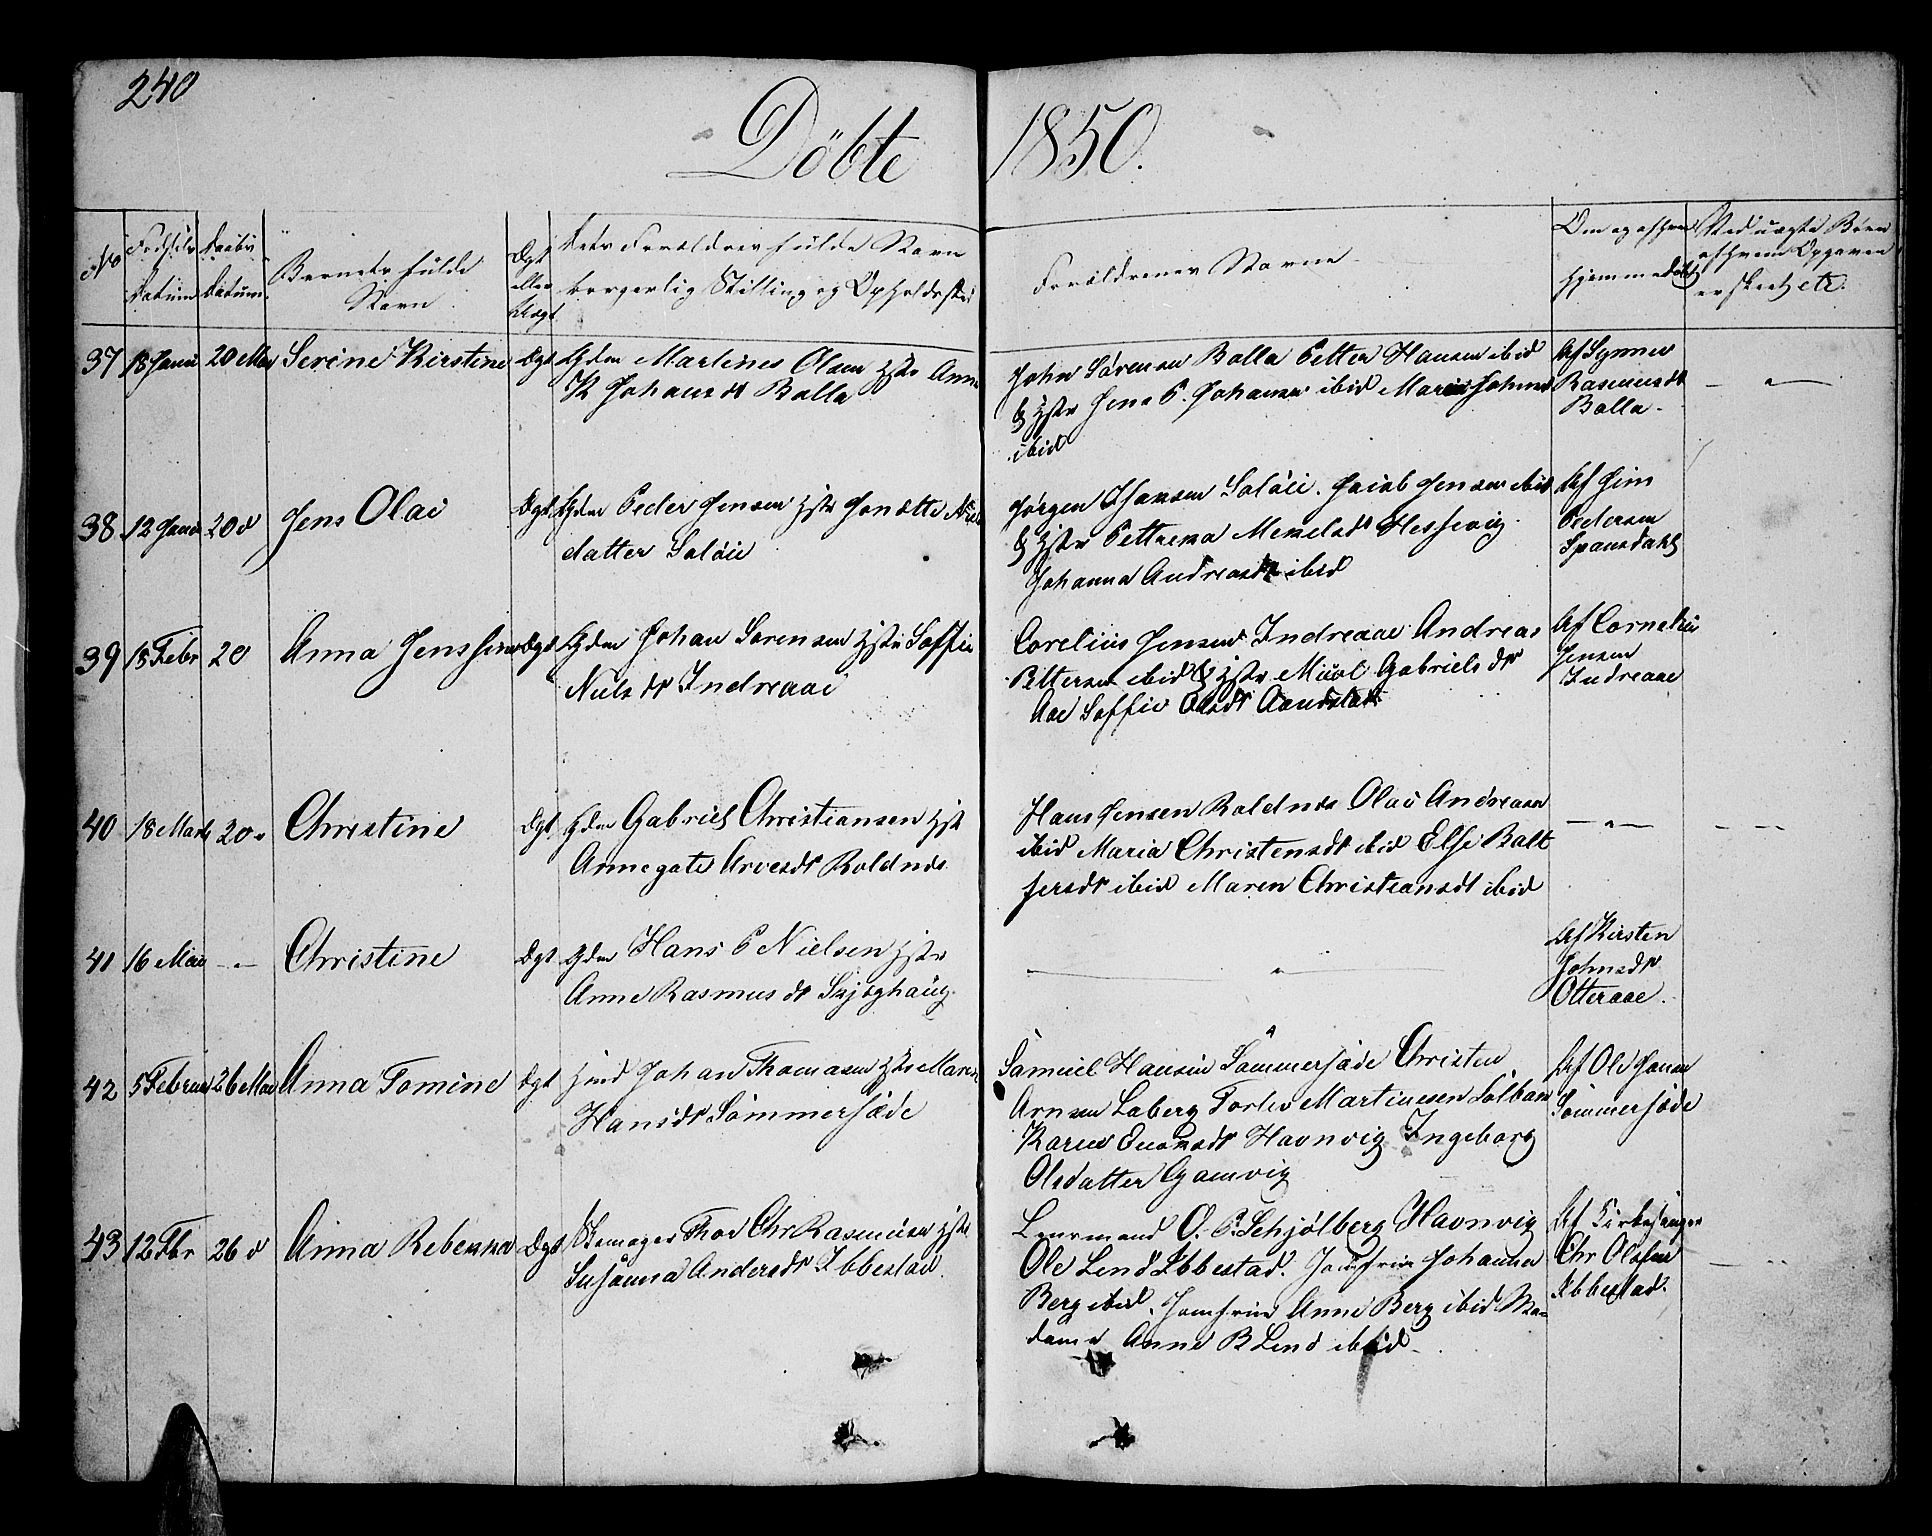 240
Döbte 1850.
No
Fødsels Datum
Daabs Datum
Barnets fulde Navn
Ægt eller Uægt
Dets Forældres fulde Navn
borgerlig Stilling og Opholdssted
Faddernes Navne
Om og af hvem hjemmedøbt
Ved uægte Børn af hvem Opgaven er skeet etc.
37 18 Janu 20 Mai Serine Kirstine Ægt Gdm Martines Olsen Hstr Anne
K Johansdt Balla
John Sørensen Balla Petter Hansen ibid
& Hstr Jens P. Johansen ibid Maria Johnsd
ibid
Af Synnev
Rasmusdt
Balla.
38 12 Janu 20 d Jens Olai Ægt Gdm Peder Jensen Hstr Jonætte Niels
datter Saløie
Jørgen Hansen Saløie. Jacob Jensen ibid
& Hstr Pettrena Mekelsdt Hessevig.
Johanna Andreasdt ibid
Af Jens
Pedersen
Spansdahl
39 18 Febr 20 Anna Ægt Gdm Johan Sørensen Hstr Soffie
Nielsdt Indreaae
Corelius Jensen Indreaae Andreas
Pettersen ibid & Hstr Gabrielsdt
Aae Soffie Olsdt
Af Cornelius
Jensen
Indreaae
40 18 Marts 20 " Christine Ægt Gdm Gabriel Christiansen Hst
Annegate Arvesdt Roldnæs
Hans Jensen Roldnes Olai Andreasen
ibid Maria Christensdt ibid Else Balt
sersdt ibid Maren Christiansdt ibid
— " — — —
41 16 Mai — " — Christine Ægt Gdm Hans P Nielsen Hstr
Anne Rasmusdt Skjøghaug.
— " —
Af Kirsten
Johnsdt
Otteraae.
42 5 Februar 26 Mai Anna Tomine Ægt Hmd Johan Thomasen Hstr Maren
Hansdt Sømmersæde
Samuel Hansen Sømmersæde Christen
Arnsen Laberg Torlev Martinesen Sølban
Karen Enoksdt Havnvig Ingeborg
Olsdatter Gamvig
Af Ole Hansen
Sømmersæde
43 12 Fbr 26 d Anna Rebekka Ægt Skomager Thor Chr Rasmusen Hstr
Susanna Andersdt Ibbestad.
Lensmand O. P. Schjølberg Havnvig
Ole Lind Ibbestad. Jomfrue Johanna
Berg ibid. Jomfrue Anne Berg ibid Ma-
dame Anne B Lind ibid
Af Kirkesanger
Chr Olsen
Ibbestad.